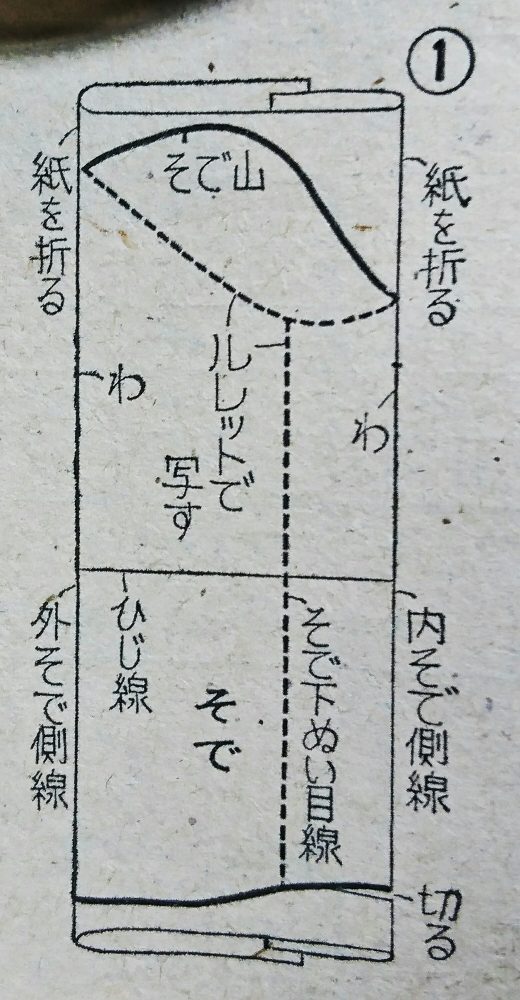 ①
そで山
紙を折る
紙を折る
ルレットで
写す
わ
わ
ひじ線
外そで側線
そで
そで下ぬい目線
内そで側線
切る